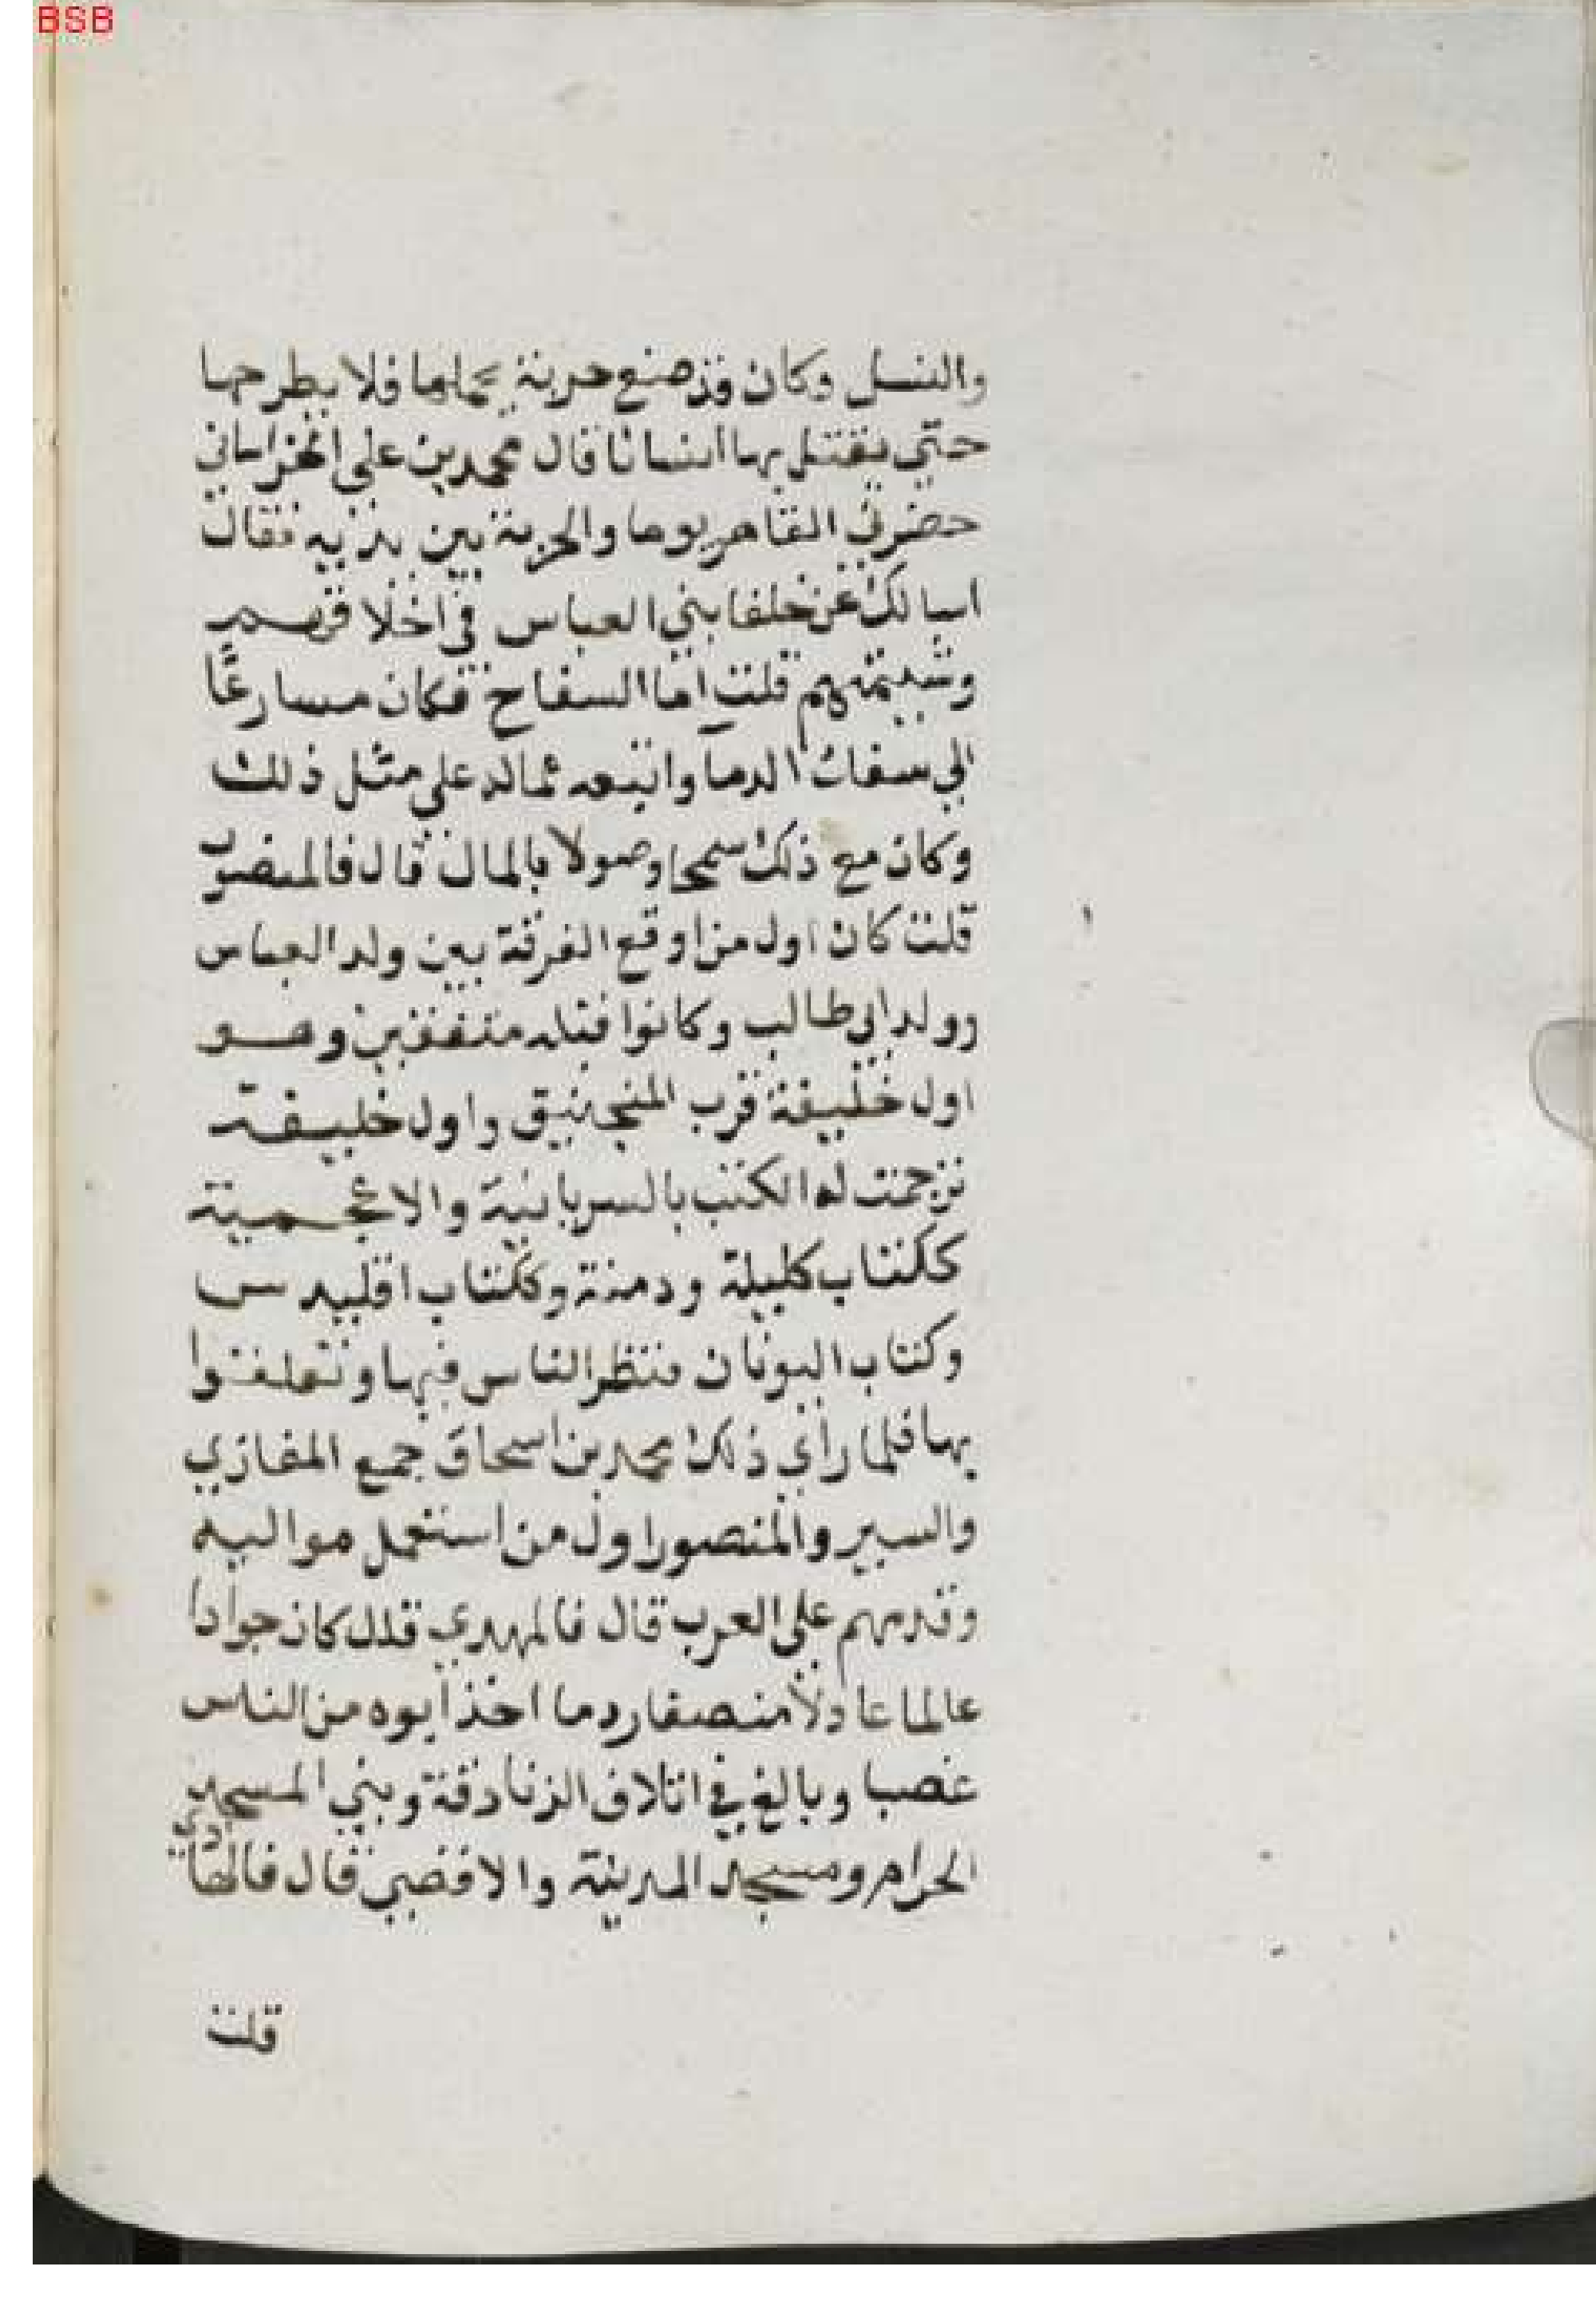 BSB
والنسل وكان قد صنع حربة يحملها فلا يطرحها
حتي يقتل بها انسانا قال محمد بن علي الخراساني
حضرني القاهر يوما والحربة بين يديه فقال
اسالك عن خلفا بني العباس في اخلاقهم
وشيمتهم قلت اما السفاح فكان مسارعًا
الي سفك الدما واتبعه عماله علي مثل ذلك
وكان مع ذلك سمحا وصولا بالمال قال فالمنصور
قلت كان اول من اوقع الفرقة بين ولد العباس
وولد ابي طالب وكانوا قبله متفقين وهو
اول خليفة قرب المنجنيق واول خليفة
ترجمت له الكتب بالسريانية والاعجمية
ككتاب كليلة ودمنة وككتاب اقليدس
وكتاب اليونان فنظر الناس فيها وتعلقوا
بها فلما رأي ذلك محمد بن اسحاق جمع المغازي
والسير والمنصور اول من استعمل مواليه
وقدمهم علي العرب قال فالمهدي قلت كان جوادا
عالما عادلا منصفا رد ما اخذ ابوه من الناس
غصبا وبالغ في اتلاف الزنادقة وبني المسجد
الحرام ومسجد المدينة والاقصي قال فالهادي
قلت